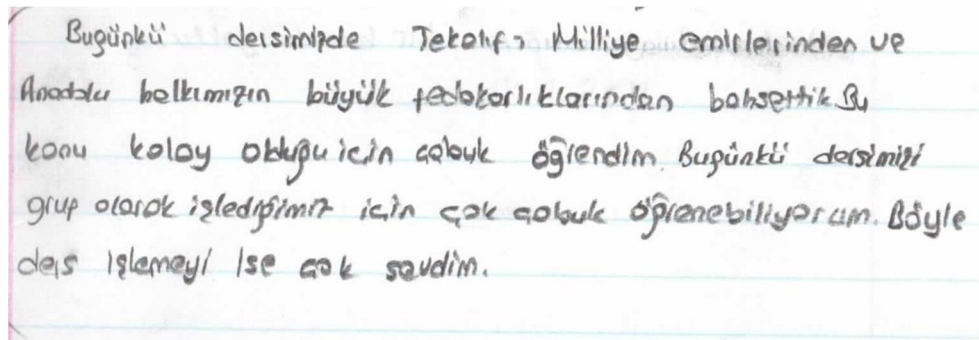 Bugünkü dersimizde Tekalif-i Milliye emirlerinden ve
Anadolu halkımızın büyük fedakarlıklarından bahsettik. Bu
konu kolay olduğu için çabuk öğrendim. Bugünkü dersimizi
grup olarak işlediğimiz için çok çabuk öğrenebiliyorum. Böyle
ders işlemeyi ise çok sevdim.